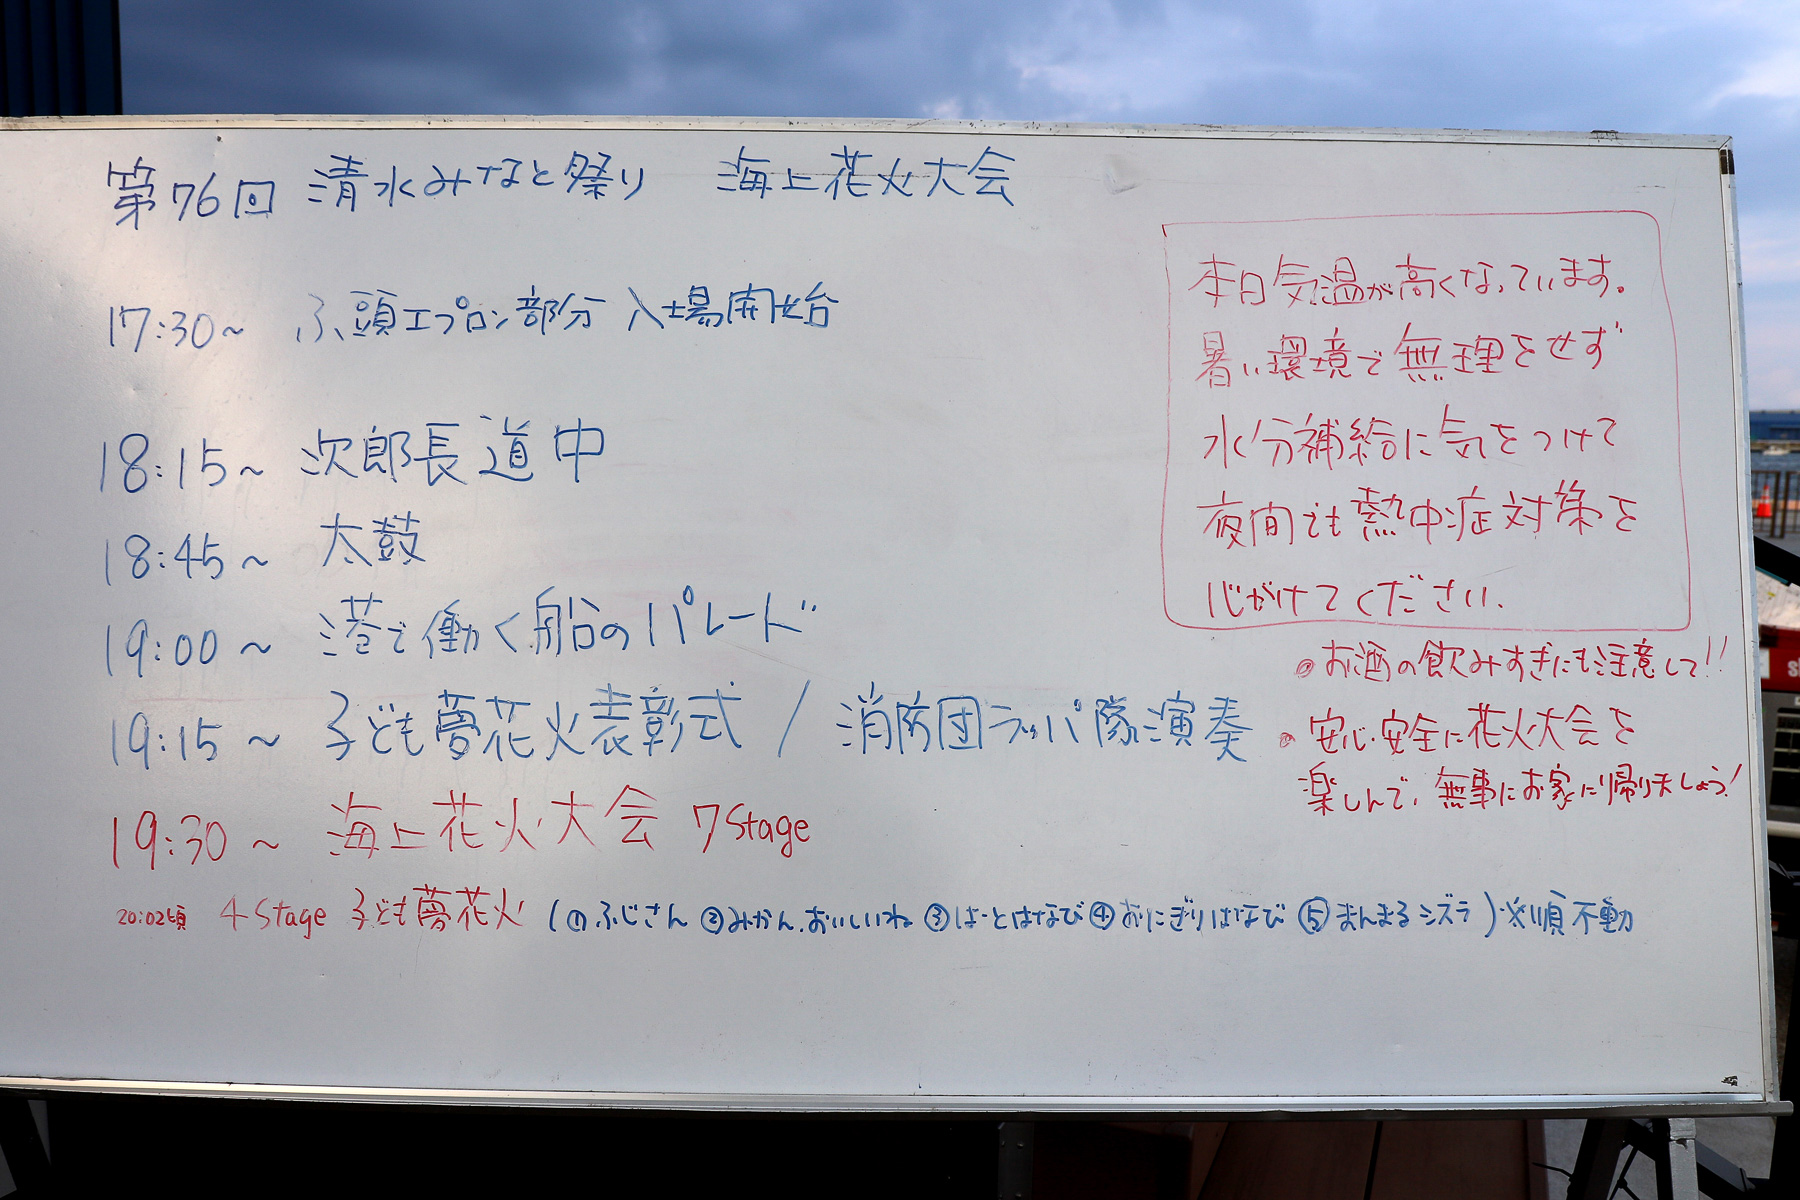 第76回 清水みなと祭り 海上花火大会
17:30~ ふ頭エプロン部分 入場開始
18:15~ 次郎長道中
18:45~ 太鼓
19:00~ 港で働く船のパレード
19:15~ 子ども夢花火表彰式 / 消防団ラッパ隊演奏
19:30~ 海上花火大会 7Stage
20:02頃 4Stage 子ども夢花火 (①ふじさん ②みかん、おいしいね ③はーとはなび ④おにぎりはなび ⑤まんまるシズラ) ※順不動
本日気温が高くなっています。
暑い環境で無理をせず
水分補給に気をつけて
夜間でも熱中症対策を
心がけてください。
お酒の飲みすぎにも注意して!!
安心・安全に花火大会を
楽しんで、無事にお家に帰りましょう!